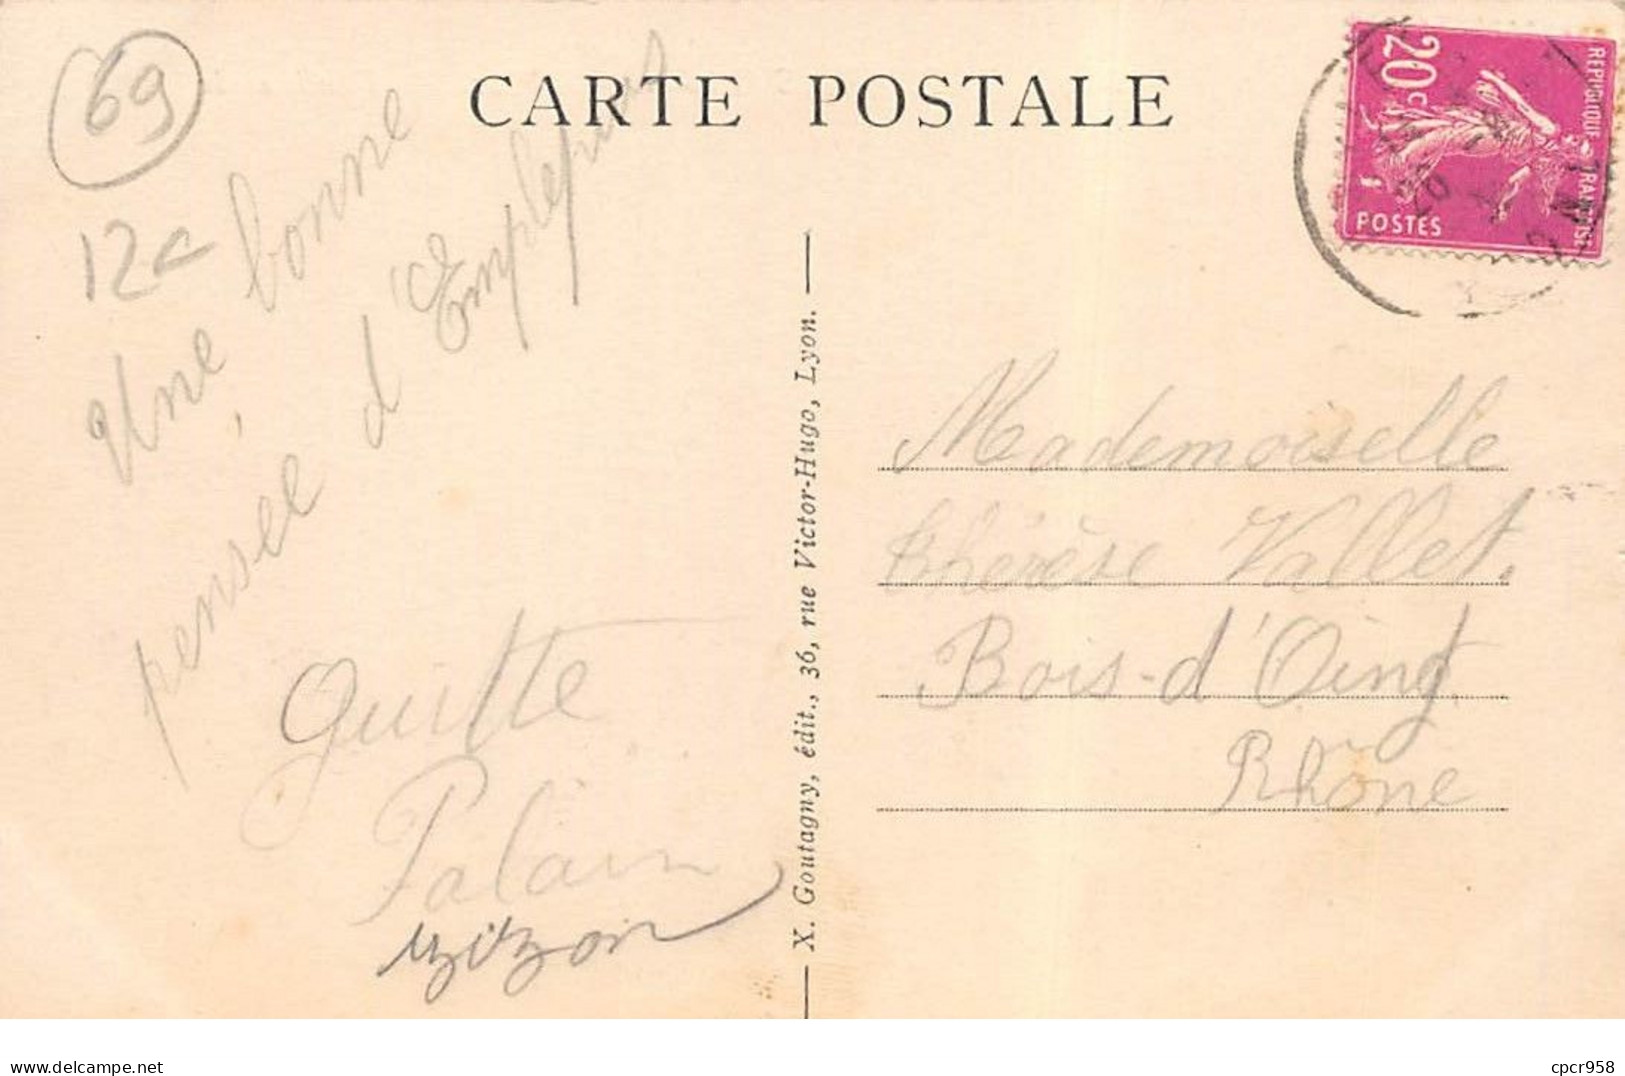 CARTE POSTALE
69
12c
Une bonne
pensée d'Emplepuis
Guitte
Palain
X. Goutagny, édit., 36, rue Victor-Hugo, Lyon.
20c
REPUBLIQUE FRANÇAISE
POSTES
Mademoiselle
thérèse Vallet.
Bois-d'Oingt
Rhône
delcampe.net
cpcr958